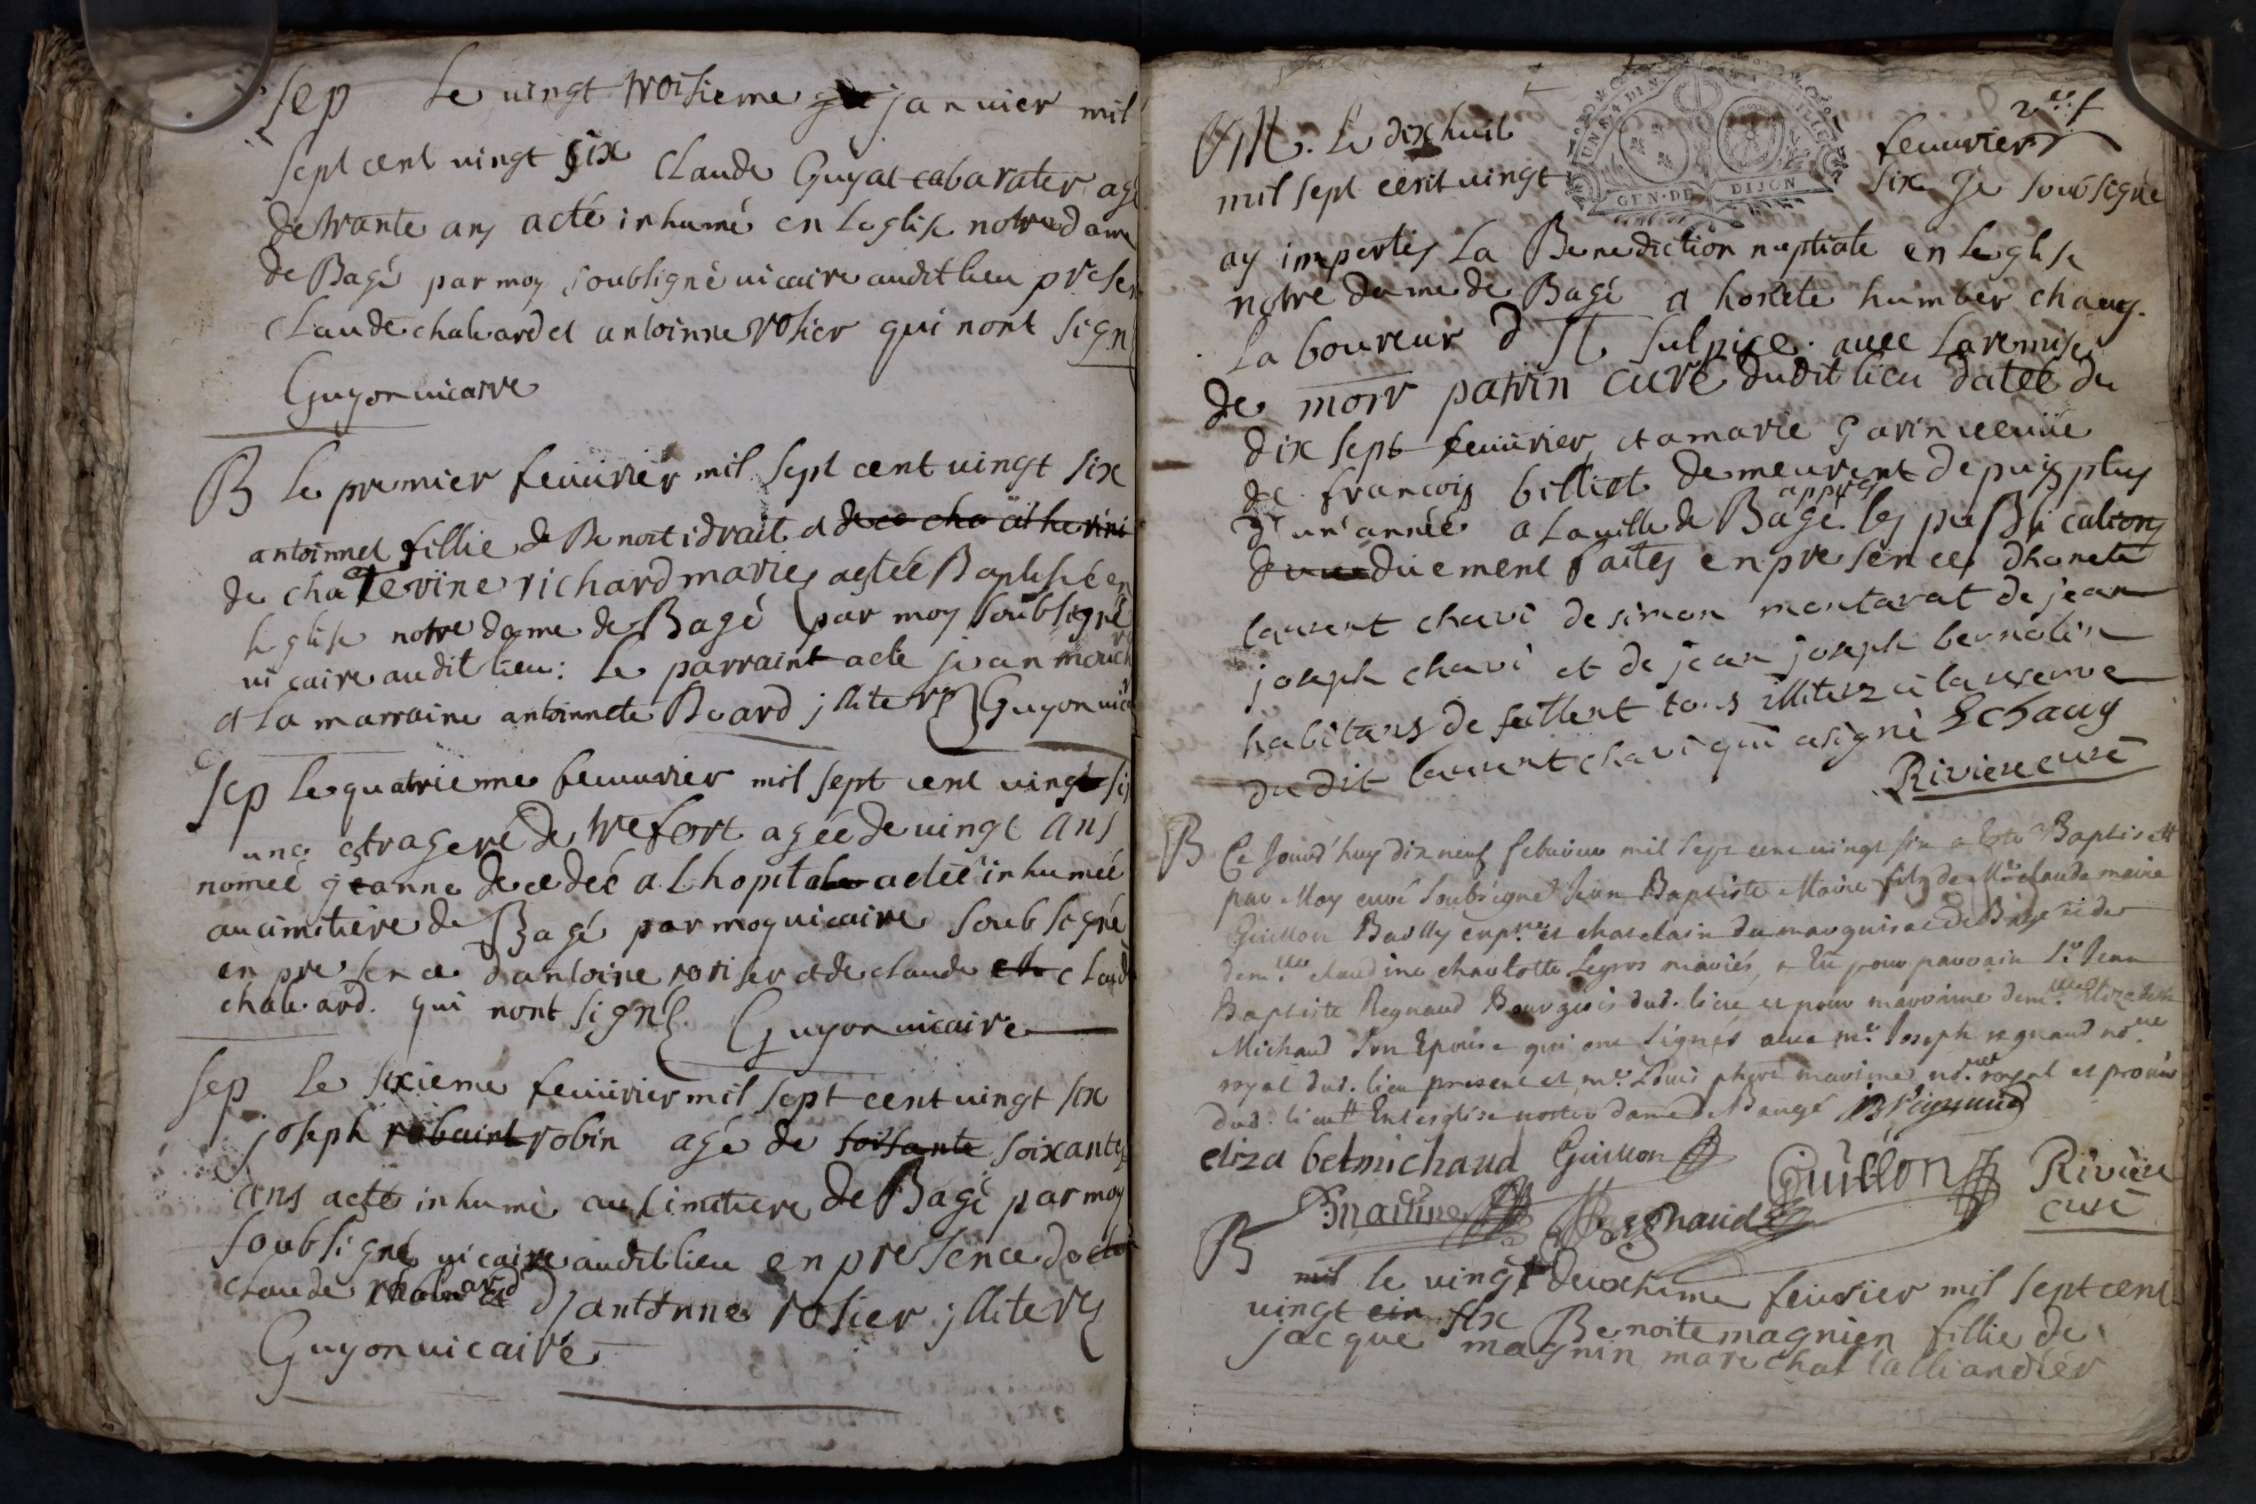 sep le vingt troisieme janvier mil
sept cent vingt six Claude Guyat cabarater agé
de trante ans acté inhumé en leglise notre dame
de Bagé par moy soubsigné vicaire audit lieu presen
Claude chalvard et antoinne rosier qui nont sign
Guyon vicaire
B le premier feuvrier mil sept cent vingt six
antoinnet fillie de Benoit idrait et
de chaterine richard maries actée Baptisée en
leglise notre dame de Bagé par moy soubsigné
vicaire audit lieu: le parraint acté jean
et la marraine antoinnete Beard jlliters Guyon vic
sep le quatrieme feuvrier mil sept cent vingt si
une etragere de trefort agée de vingt ans
nomeé geanne decedeé a Lhopital acteé inhumeé
au cimitiere de Bagé par moy vicaire soubsigné
en presence dantoine rosier et de claude claud
chalvard. qui nont signé Guyon vicaire
sep le sixieme feuvrier mil sept cent vingt six
joseph robaint robin agé de soisante soixante
ans acté inhumé au simitiere de Bagé par moy
soubsigné vicaire audit lieu en presence de
claude chalvard dantonne rosier jlliters
Guyon vicaire
M. Le dix huit feuvrier
mil sept cent vingt six Je sousigné
GEN·DE DIJON
ay impertis La Benediction nuptiale en leglise
notre dame de Bagé a honete humber chavy
laboureur d St Sulpice. avec la remise
de monr patrin curé dudit lieu datée du
dix sept feuvrier et a marie garin veuve
de francois billiot demeurant depuis plus
d'un année a la ville de Bagé. appres les publications
duement faites en presence dhonete
laurent chavi de simon montarat de jean
joseph chavi et de jean joseph bernolin
habitans de feillent tous illiterz a la reserve
du dit laurent chavi qui a signé L chavy
Riviere curé
B Ce Jourd'huy dix neuf febvrier mil sept cent vingt six a Esté Baptisé
par Moy curé soubsigné Jean Baptiste Maire filz de Mr claude maire
Guillon Bailly et chatelain du marquisat de Bagé et de
demlle claudine charlotte Legros mariés, a Eü pour parrain Sr Jean
Baptiste Regnaud Bourgeois dud. lieu et pour marraine demlle Elizabeth
Michaud son Epouse qui ont signés avec mr Joseph regnaud
royal dud. lieu present et mr Louis royal et
dud. lieu En leglise nostre dame de Baugé
eliza bet michaud Guillon
Guillon Riviere
Regnaud curé
B
le vingt deuxhieme feuvrier mil sept cent
vingt six Benoite magnien fillie de
jacque magnin marechal talliandier